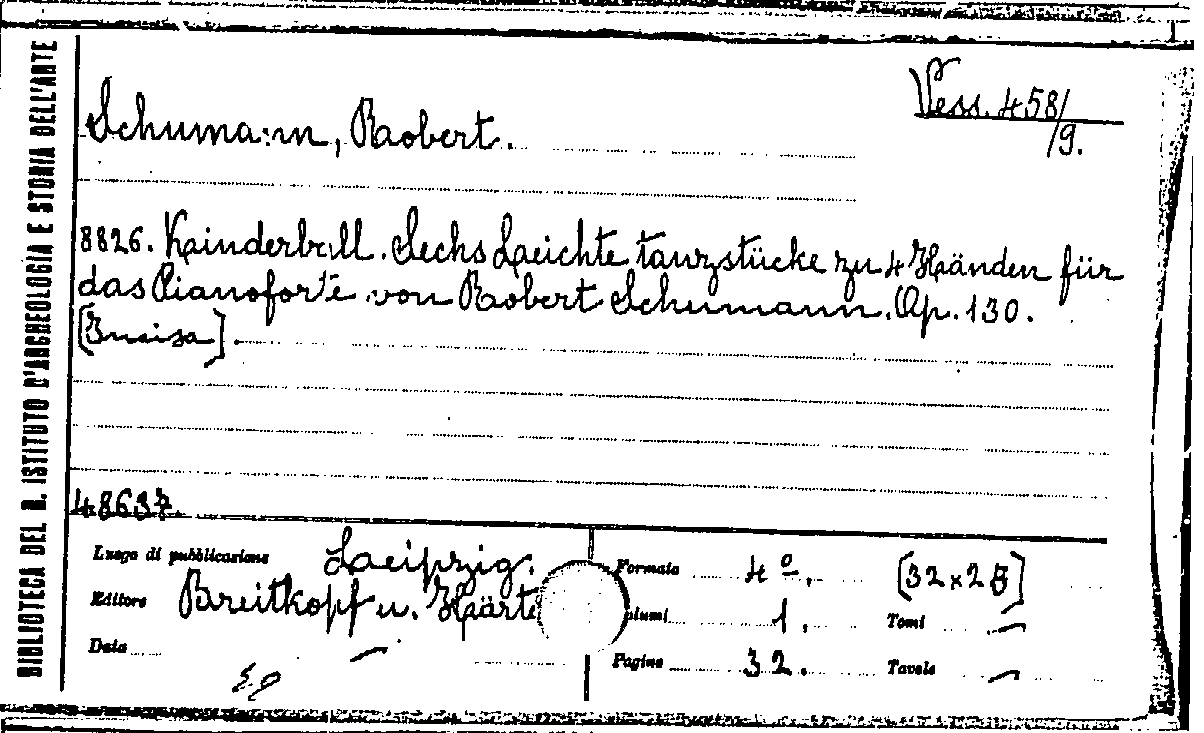 BIBLIOTECA DEL R. ISTITUTO D'ARCHEOLOGIA E STORIA DELL'ARTE
Vess. 458/
/9.
Schumann, Robert.
8826. Kinderball. Sechs Leichte tanzstücke zu 4 Händen für
das Pianoforte von Robert Schumann. Op. 130.
[Musica].
48637.
Luogo di pubblicazione Leipzig. Formato 4º. [32x25]
Editore Breitkopf u. Härte Volumi 1. Tomi —
Data — Pagine 32. Tavole —